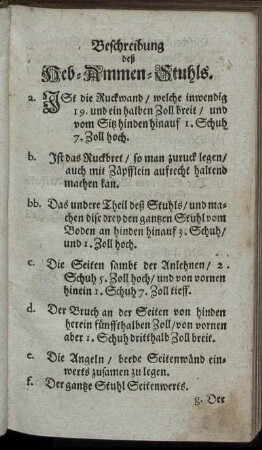 Beschreibung
deß
Heb-Ammen-Stuhls.
a. ISt die Ruckwand / welche inwendig
19. und ein halben Zoll breit / und
vom Sitz hinden hinauf 1. Schuh
7. Zoll hoch.
b. Ist das Ruckbret / so man zuruck legen /
auch mit Zäpfflein aufrecht haltend
machen kan.
bb. Das undere Theil deß Stuhls / und ma-
chen dise drey den gantzen Stuhl vom
Boden an hinden hinauf 3. Schuh /
und 1. Zoll hoch.
c. Die Seiten sambt der Anlehnen / 2.
Schuh 5. Zoll hoch / und von vornen
hinein 1. Schuh 7. Zoll tieff.
d. Der Bruch an der Seiten von hinden
herein fünffthalben Zoll / von vornen
aber 1. Schuh dritthalb Zoll breit.
e. Die Angeln / beede Seitenwänd ein-
werts zusamen zu legen.
f. Der gantze Stuhl Seitenwerts.
g. Der